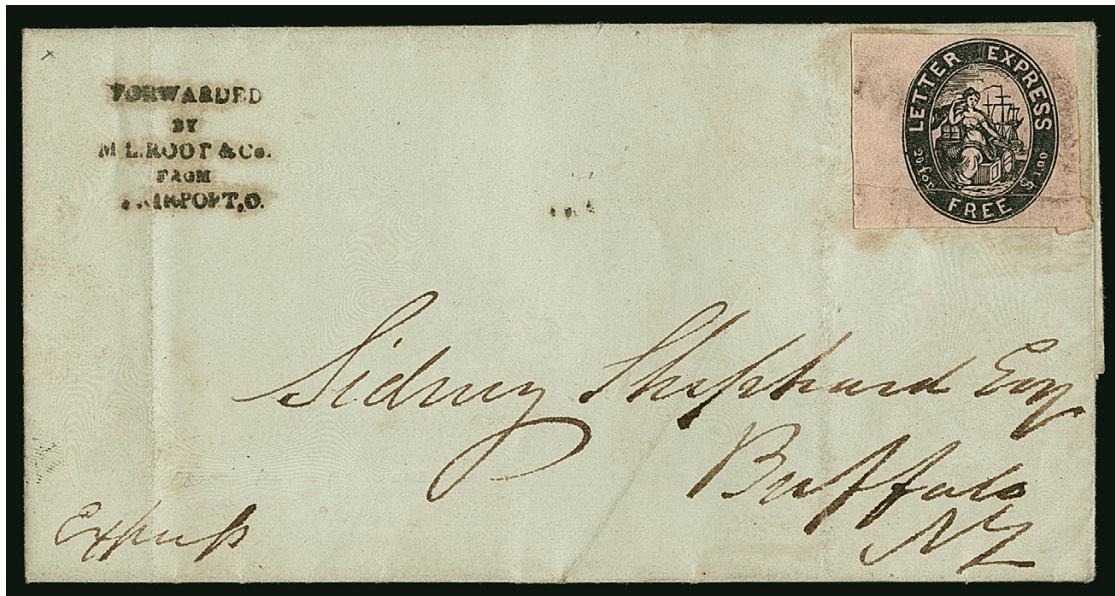 FORWARDED
BY
M. L. ROOT & Co.
FROM
FAIRPORT, O.
LETTER EXPRESS
FREE
20 for
DOL
Sidney Shephard Esq
Buffalo
NY
Express